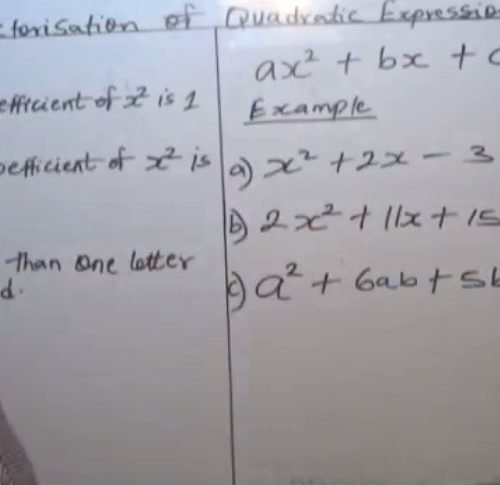 ctorisation of Quadratic Expressio
efficient of x² is 1
oefficient of x² is
than one letter
d.
ax² + bx + c
Example
a) x² + 2x - 3
b) 2x² + 11x + 15
c) a² + 6ab + 5b